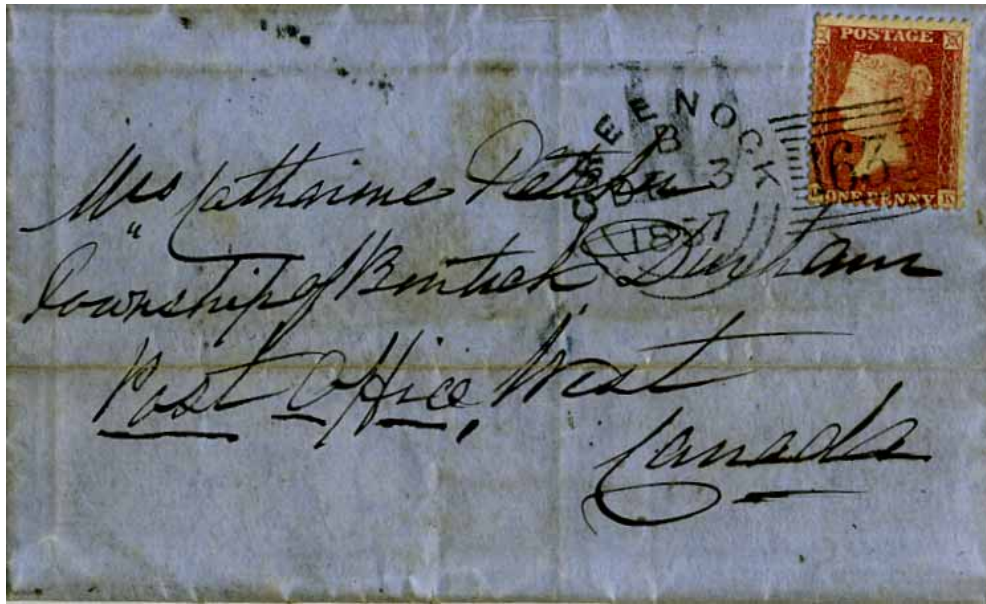 POSTAGE
ONE PENNY
K
163
GREENOCK
B
3
1857
Mrs Catharine
Township of Bentick, Durham
Post Office, West
Canada